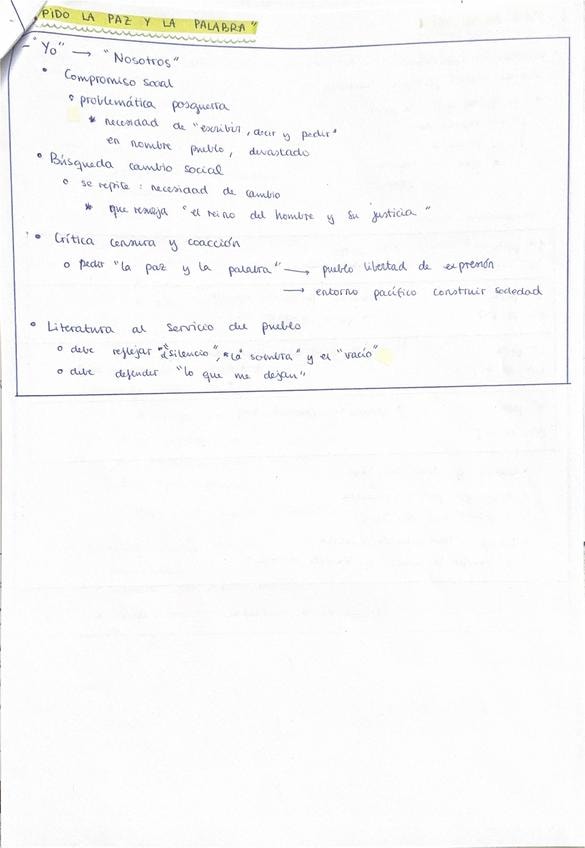 "PIDO LA PAZ Y LA PALABRA"
- "Yo" → "Nosotros"
• Compromiso social
◦ problemática posguerra
* necesidad de "escribir, decir y pedir"
en nombre pueblo, devastado
• Búsqueda cambio social
◦ se repite: necesidad de cambio
* que resurja "el reino del hombre y su justicia"
• Crítica censura y coacción
◦ pedir "la paz y la palabra" → pueblo libertad de expresión
→ entorno pacífico construir sociedad
• Literatura al servicio del pueblo
◦ debe reflejar "silencio", "la sombra" y el "vacío"
◦ debe defender "lo que me dejan"